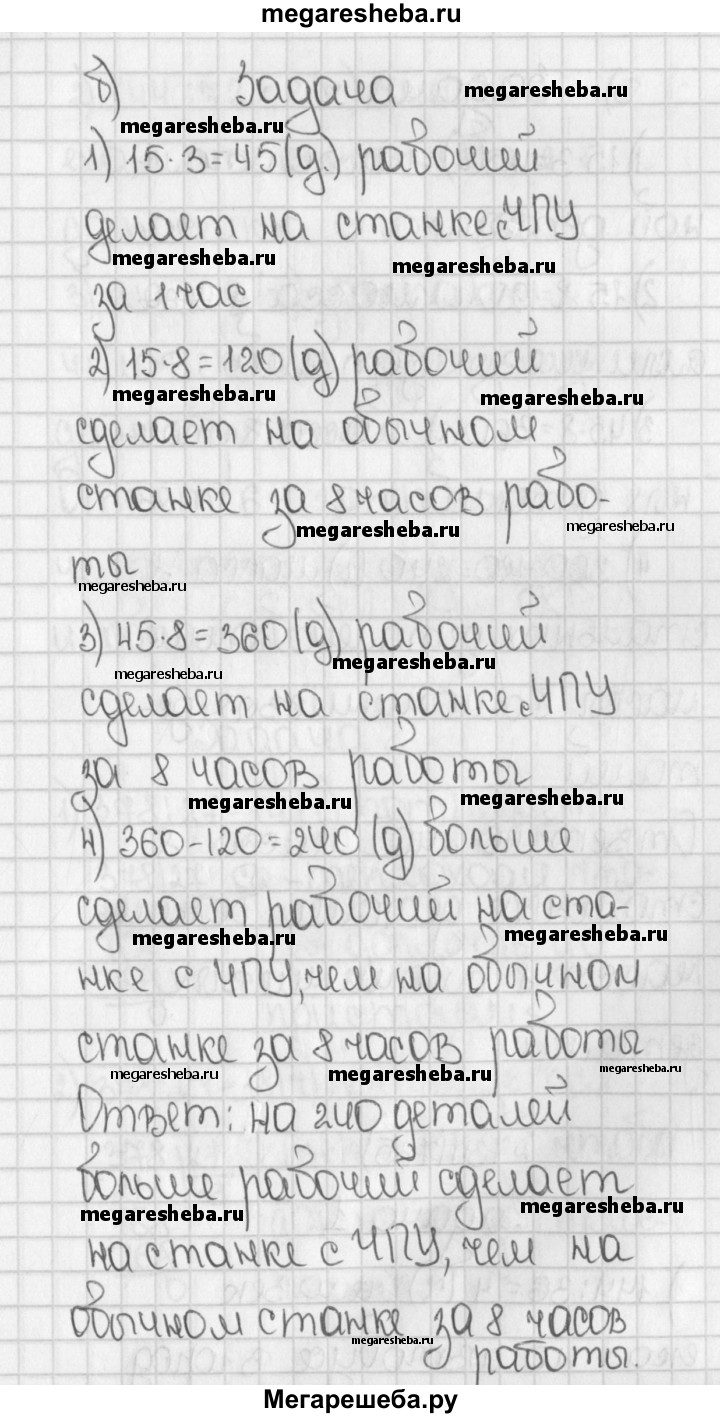 megaresheba.ru
б) Задача
megaresheba.ru
megaresheba.ru
1) 15·3=45(д.) рабочий
делает на станке с ЧПУ
megaresheba.ru
megaresheba.ru
за 1 час
2) 15·8=120(д) рабочий
megaresheba.ru
megaresheba.ru
сделает на обычном
станке за 8 часов рабо-
megaresheba.ru
megaresheba.ru
ты
megaresheba.ru
3) 45·8=360(д) рабочий
megaresheba.ru
megaresheba.ru
сделает на станке с ЧПУ
за 8 часов работы
megaresheba.ru
megaresheba.ru
4) 360-120=240(д) больше
сделает рабочий на ста-
megaresheba.ru
megaresheba.ru
нке с ЧПУ, чем на обычном
станке за 8 часов работы
megaresheba.ru
megaresheba.ru
megaresheba.ru
Ответ: на 240 деталей
больше рабочий сделает
megaresheba.ru
megaresheba.ru
на станке с ЧПУ, чем на
обычном станке за 8 часов
megaresheba.ru
работы.
Мегарешеба.ру